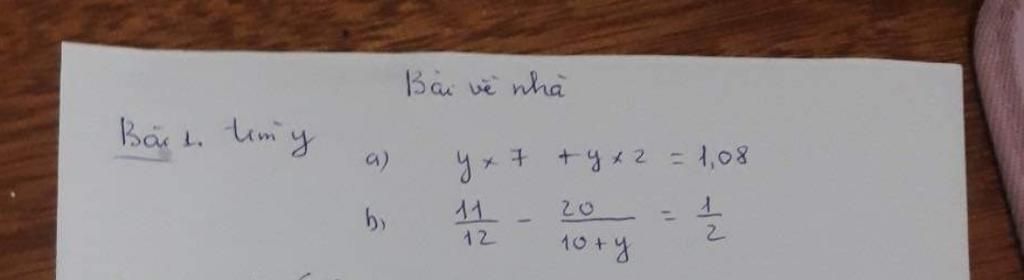 Bài về nhà
Bài 1. tìm y
a) y × 7 + y × 2 = 1,08
b) 11/12 - 20/(10 + y) = 1/2